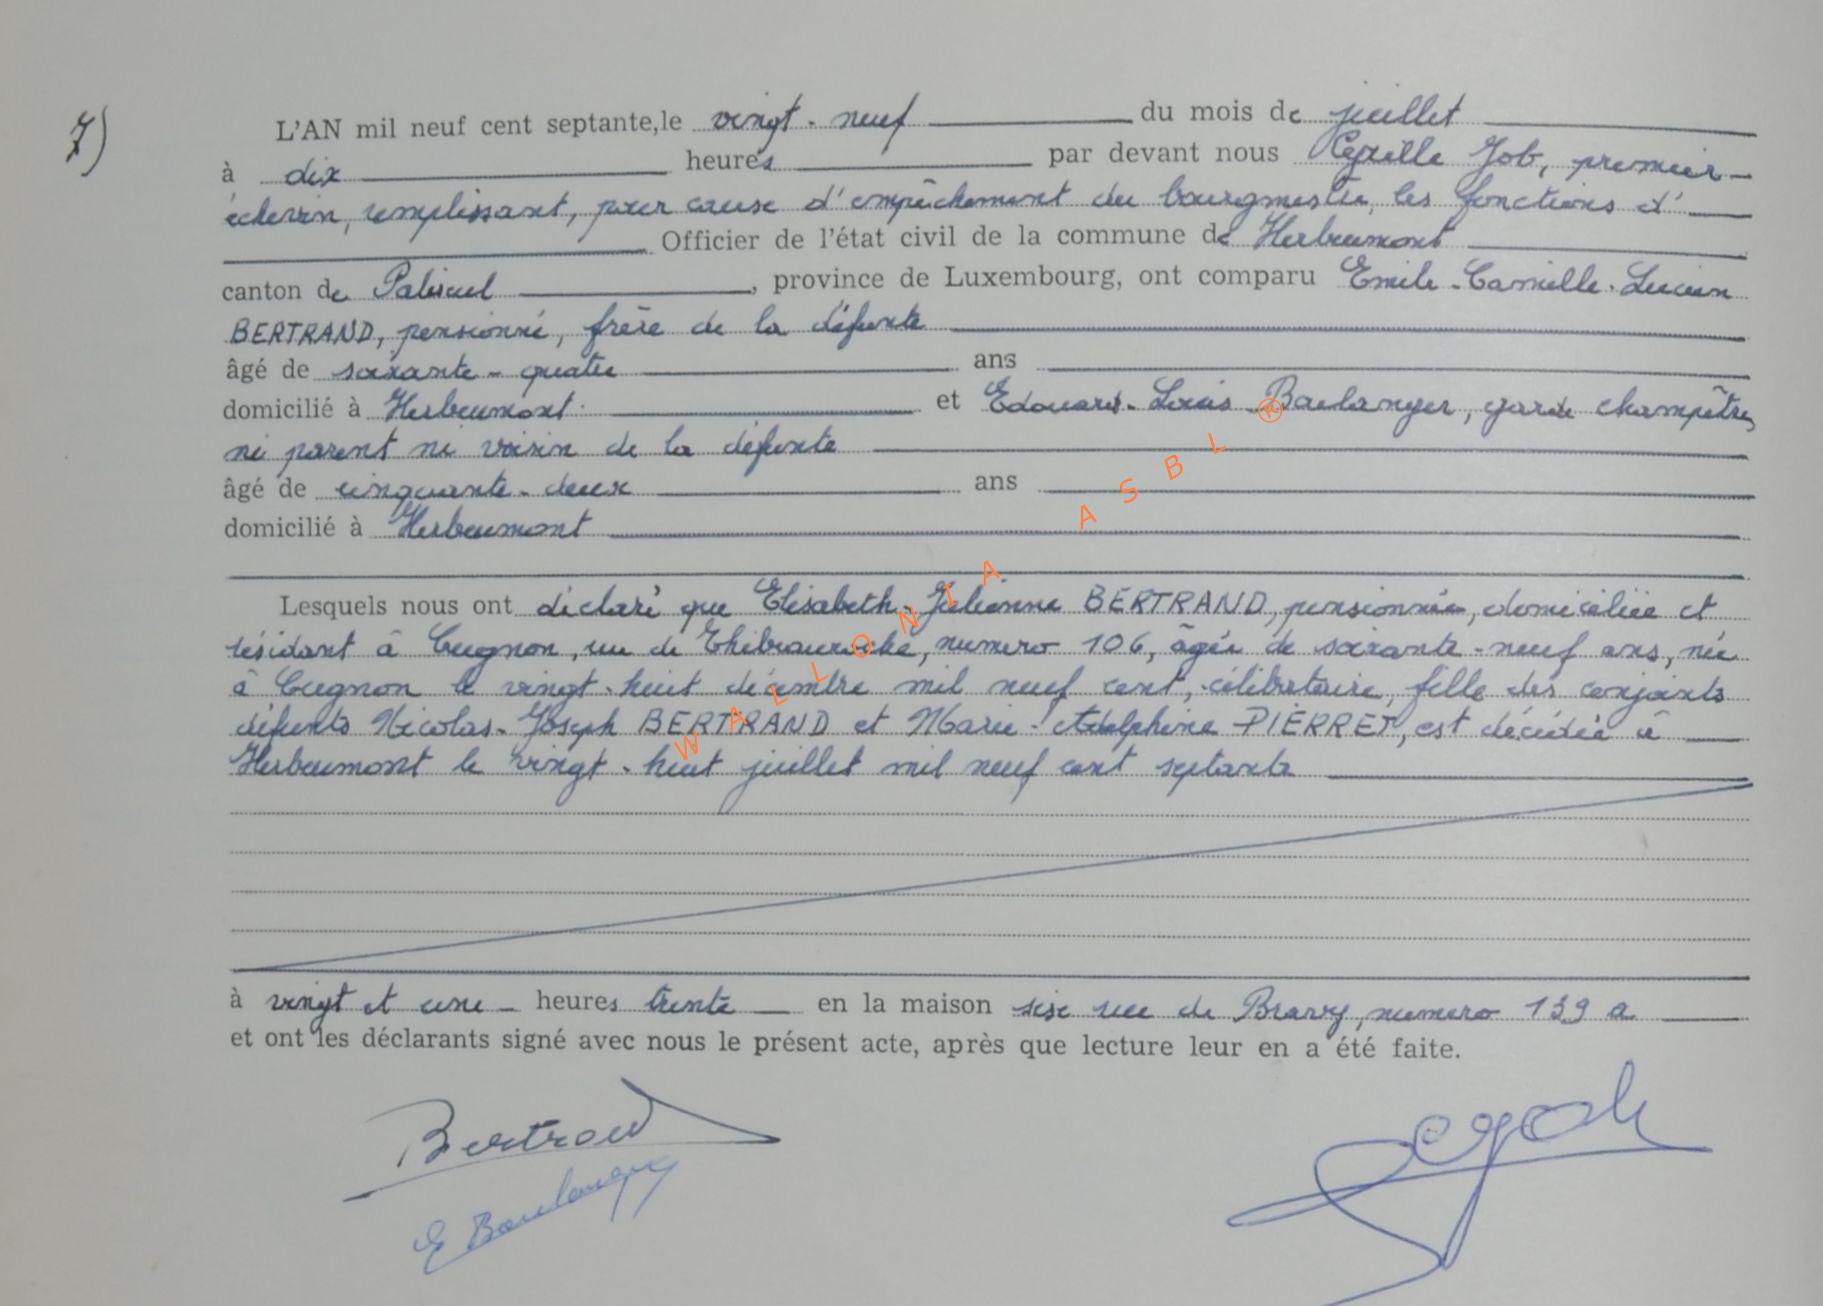 7)
L'AN mil neuf cent septante, le vingt-neuf du mois de juillet
à dix heures par devant nous Job, premier
échevin, remplissant, pour cause d'empêchement du bourgmestre, les fonctions d'
Officier de l'état civil de la commune de Herbeumont
canton de Paliseul, province de Luxembourg, ont comparu Emile-Camille-Lucien
BERTRAND, pensionné, frère de la défunte
âgé de soixante-quatre ans
domicilié à Herbeumont et Edouard-Louis Boulanger, garde champêtre,
ni parent ni voisin de la défunte
âgé de cinquante-deux ans
domicilié à Herbeumont
Lesquels nous ont déclaré que Elisabeth-Julienne BERTRAND, pensionnée, domiciliée et
résidant à Cugnon, rue de numéro 106, âgée de soixante-neuf ans, née
à Cugnon le vingt-huit décembre mil neuf cent, célibataire, fille des conjoints
défunts Nicolas-Joseph BERTRAND et Marie-Adelphine PIERRET, est décédée à
Herbeumont le vingt-huit juillet mil neuf cent septante
à vingt et une heures trente en la maison sise rue de Bravy, numéro 139 a
et ont les déclarants signé avec nous le présent acte, après que lecture leur en a été faite.
Bertrand
E Boulanger
WALLONIA ASBL ®